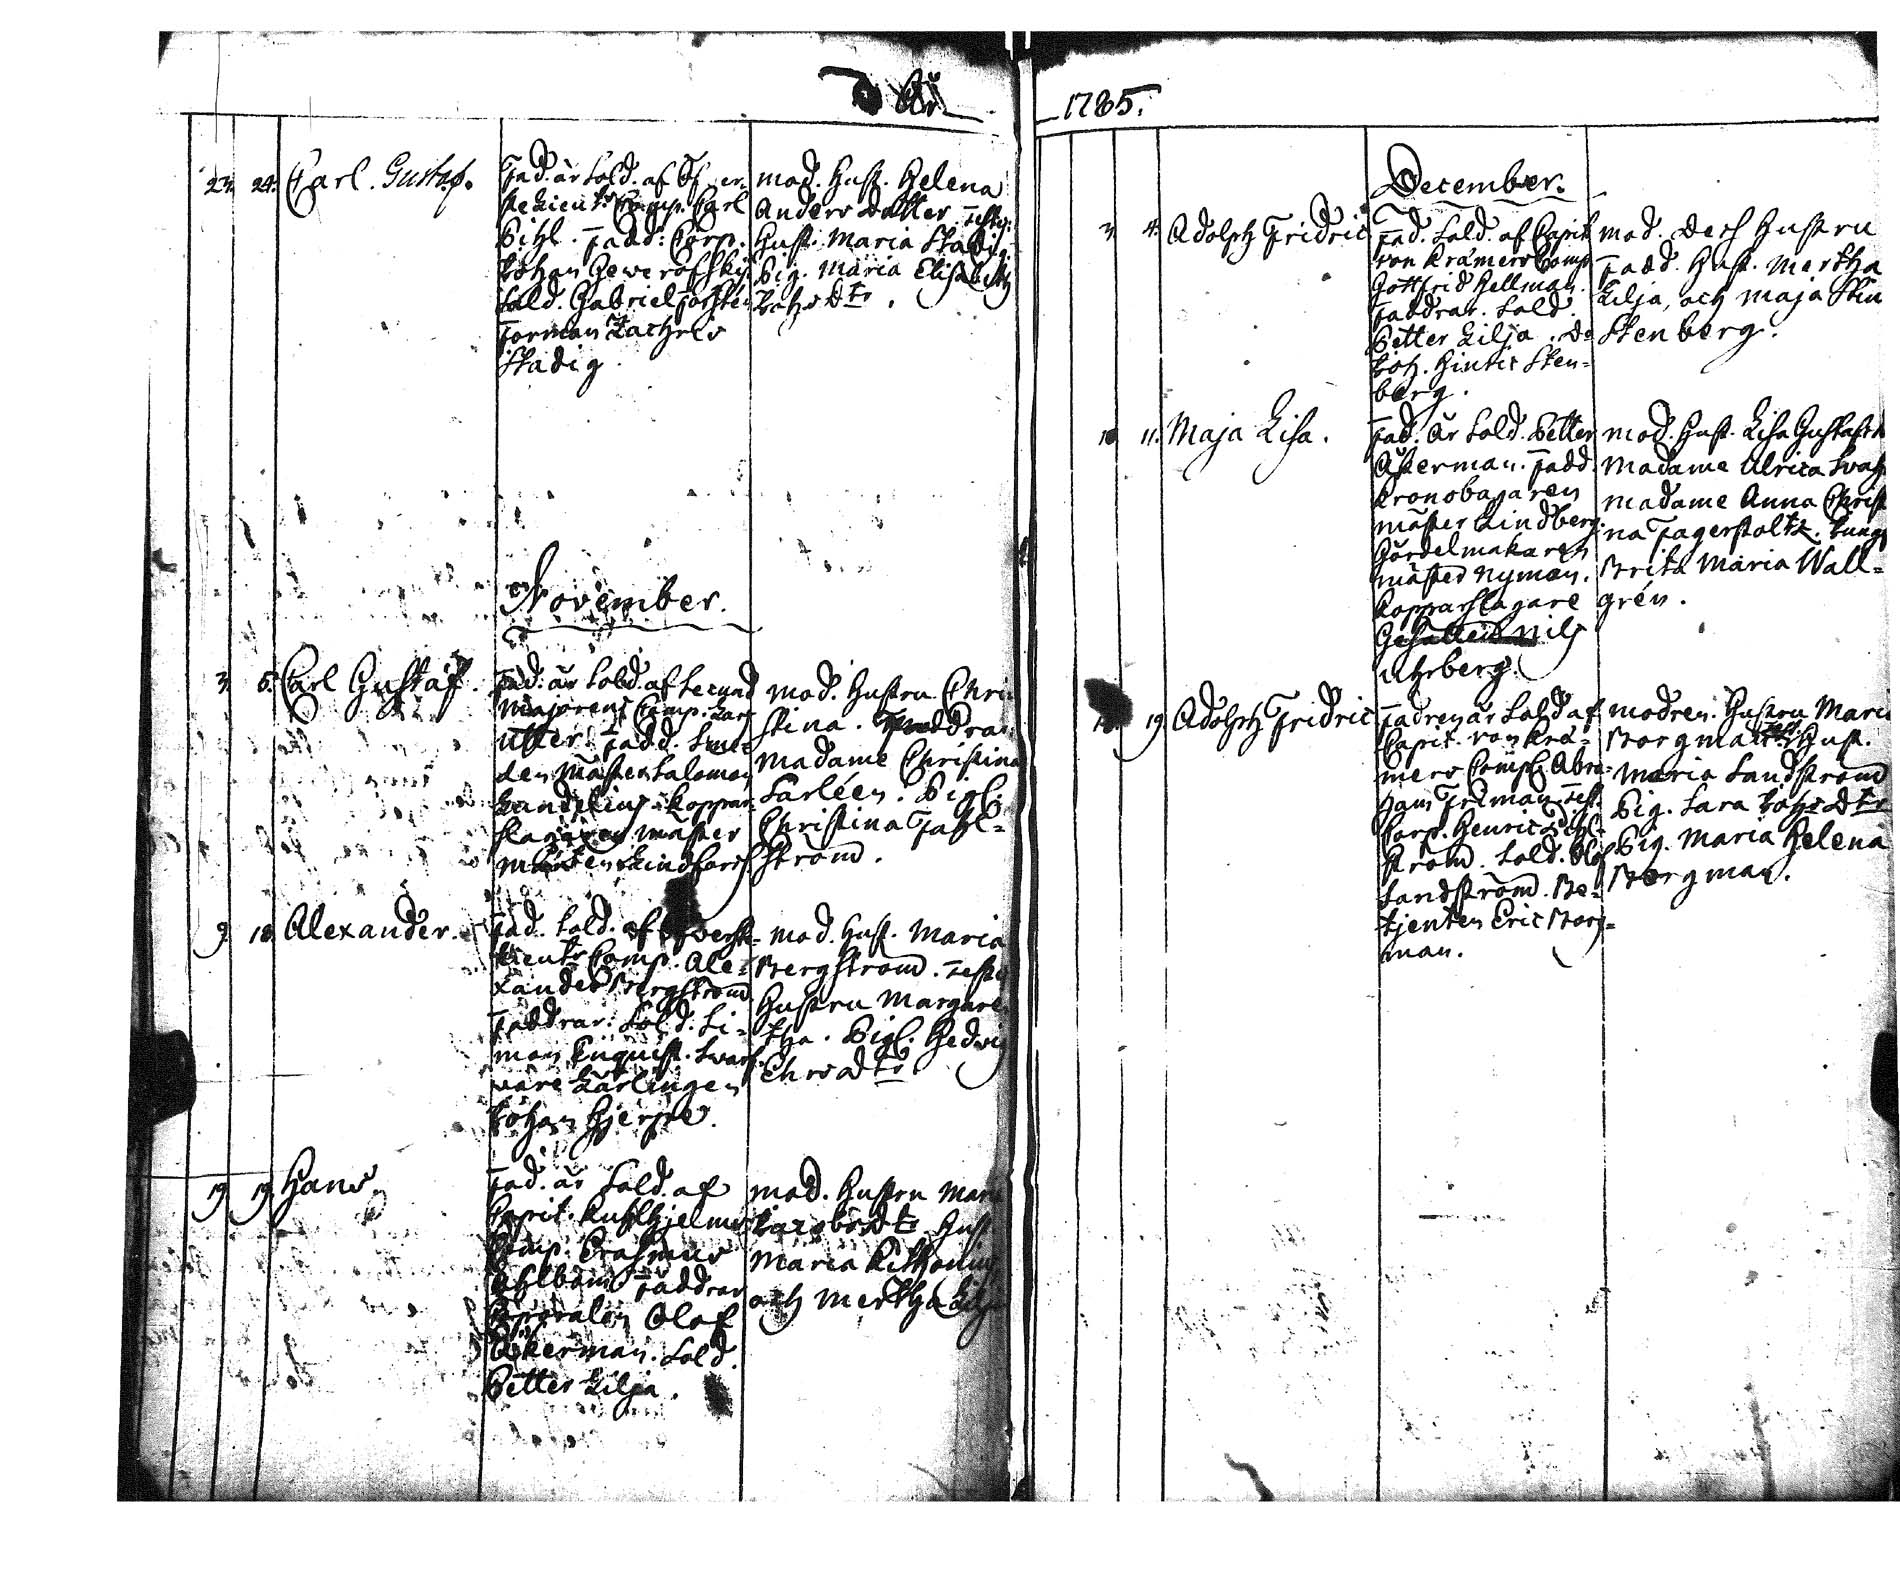 År
23. 24. Carl. Gustaf.
Fad. är Sold. af Öfver-
ste Lieut:s Comp. Carl
Pihl. Fadd: Corp.
Johan
Sold. Gabriel
Forman Zachris
Stadig
mod. Hust. Helena
Anders Dotter. Test.
Hust. Maria Stadig
Pig. Maria Elisabeth
Johsdtr.
November.
3. 6. Carl Gustaf.
Fad. är Sold. af Second
Majorens Comp. Lars
Utter. Fadd. Sme-
den Mäster Salomon
Zandelius. Koppar-
slagaren Mäster
Mårten Lindfors.
mod. Hustru Chri
stina. Faddrar
Madame Christina
Sarléen. Pigl.
Christina Fahl-
ström.
9. 18. Alexander.
Fad. Sold. af Öfverste-
Lieuts Comp. Ale-
xander Bergström
Faddrar: Sold. Si-
mon Enquist. Svarf-
vare Lärlingen
Johan Hjerpe.
mod. Hust. Maria
Bergström. Test.
Hustru Margare
tha. Pigl. Hedvig
Ehrsdtr
19. 19. Hans
Fad. är Sold. af
Capit. Kuhlhjelms
Comp. Erasmus
Ahlbom Faddrar
Corporalen Olof
Åkerman. Sold.
Petter Lilja.
mod. Hustru Mari
Jacobsdtr Hust
Maria
och Mertha Lilja
1785.
December.
3. 4. Adolph Fridric
Fad. Sold. af Capit
von Kræmers Comp
Gottfrid Hellman.
Faddrar. Sold.
Petter Lilja. Do
Joh. Hinric Sten-
berg.
mod. Dess Hustru
Fadd. Hust. Mertha
Lilja, och Maja Stin
Stenberg.
10. 11. Maja Lisa.
Fad. är Sold. Petter
Åkerman. Fadd.
Kronobagaren
Mäster Lindberg.
Gördelmakaren
Mäster Nyman.
Kopparslagare
Gesällen Nils
Uhrberg.
mod. Hust. Lisa Gustafsd
Madame Ulrica Svah
Madame Anna Christ
na Fagerholtz. Jungf
Brita Maria Wall-
grén.
19. Adolph Fridric
Fadren är Sold af
Capit. von Kræ-
mers Comp. Abra-
ham Friman. Test.
Corp. Henric Dahl-
ström. Sold. Olof
Sandström. Be-
tjenten Eric Borg-
man.
modren. Hustru Maria
Borgman. Hust.
Maria Sandström
Pig. Sara Johsdtr
Pig. Maria Helena
Borgman.